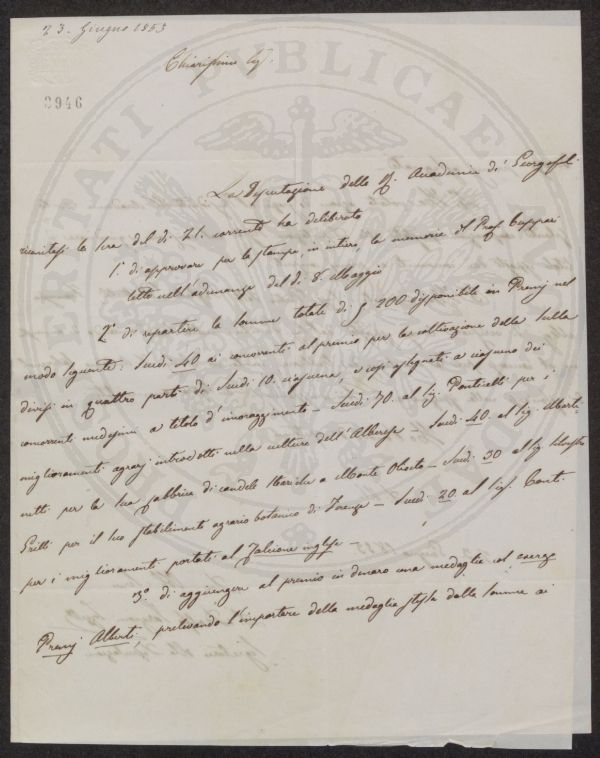 23. Giugno 1853
Chiarissimo Sig.
3946
PROSPERITATI PUBLICAE
La Deputazione della R. Accademia dei Georgofili
riunitasi la sera del dì 21. corrente ha deliberato
1.° di approvare per la stampa, in intiero, la memoria del Prof. Cuppari
letta nell'adunanza del dì 8. Maggio
2.° di repartire la somma totale di 200 disponibile in Premj nel
modo seguente: Scudi 40 ai concorrenti al premio per la coltivazione della Sulla
divisi in quattro parti di Scudi 10. ciascuna, e così assegnati a ciascuno dei
concorrenti medesimi a titolo d'incoraggimento – Scudi 70. al Sig. Ponticelli per i
miglioramenti agrarj introdotti nella cultura dell'Alberese – Scudi 40. al Sig.
netti per la sua fabbrica di candele steariche a Monte Oliveto – Scudi 30 al Sig.
per il suo stabilimento agrario botanico di Firenze – Scudi 20 al Sig. Conti
per i miglioramenti portati al Falcione inglese –
3.° di aggiungere al premio in denaro una medaglia col esergo
Premj Alberti prelevando l'importare della medaglia stessa dalla somma ai